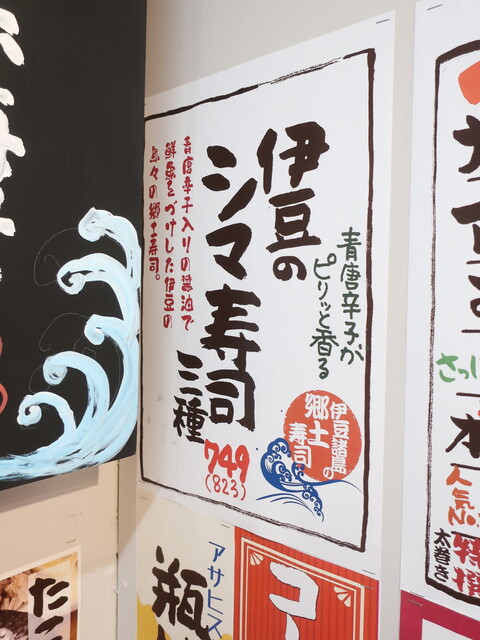 青唐辛子が
ピリッと香る
伊豆の
シマ寿司
三種
749
(823)
青唐辛子入りの醤油で
鮮魚をづけした伊豆の
島々の郷土寿司。
伊豆諸島の
郷土
寿司
さっぱ
人気No.
特撰
太巻き
アサヒス
瓶
コー
たこ